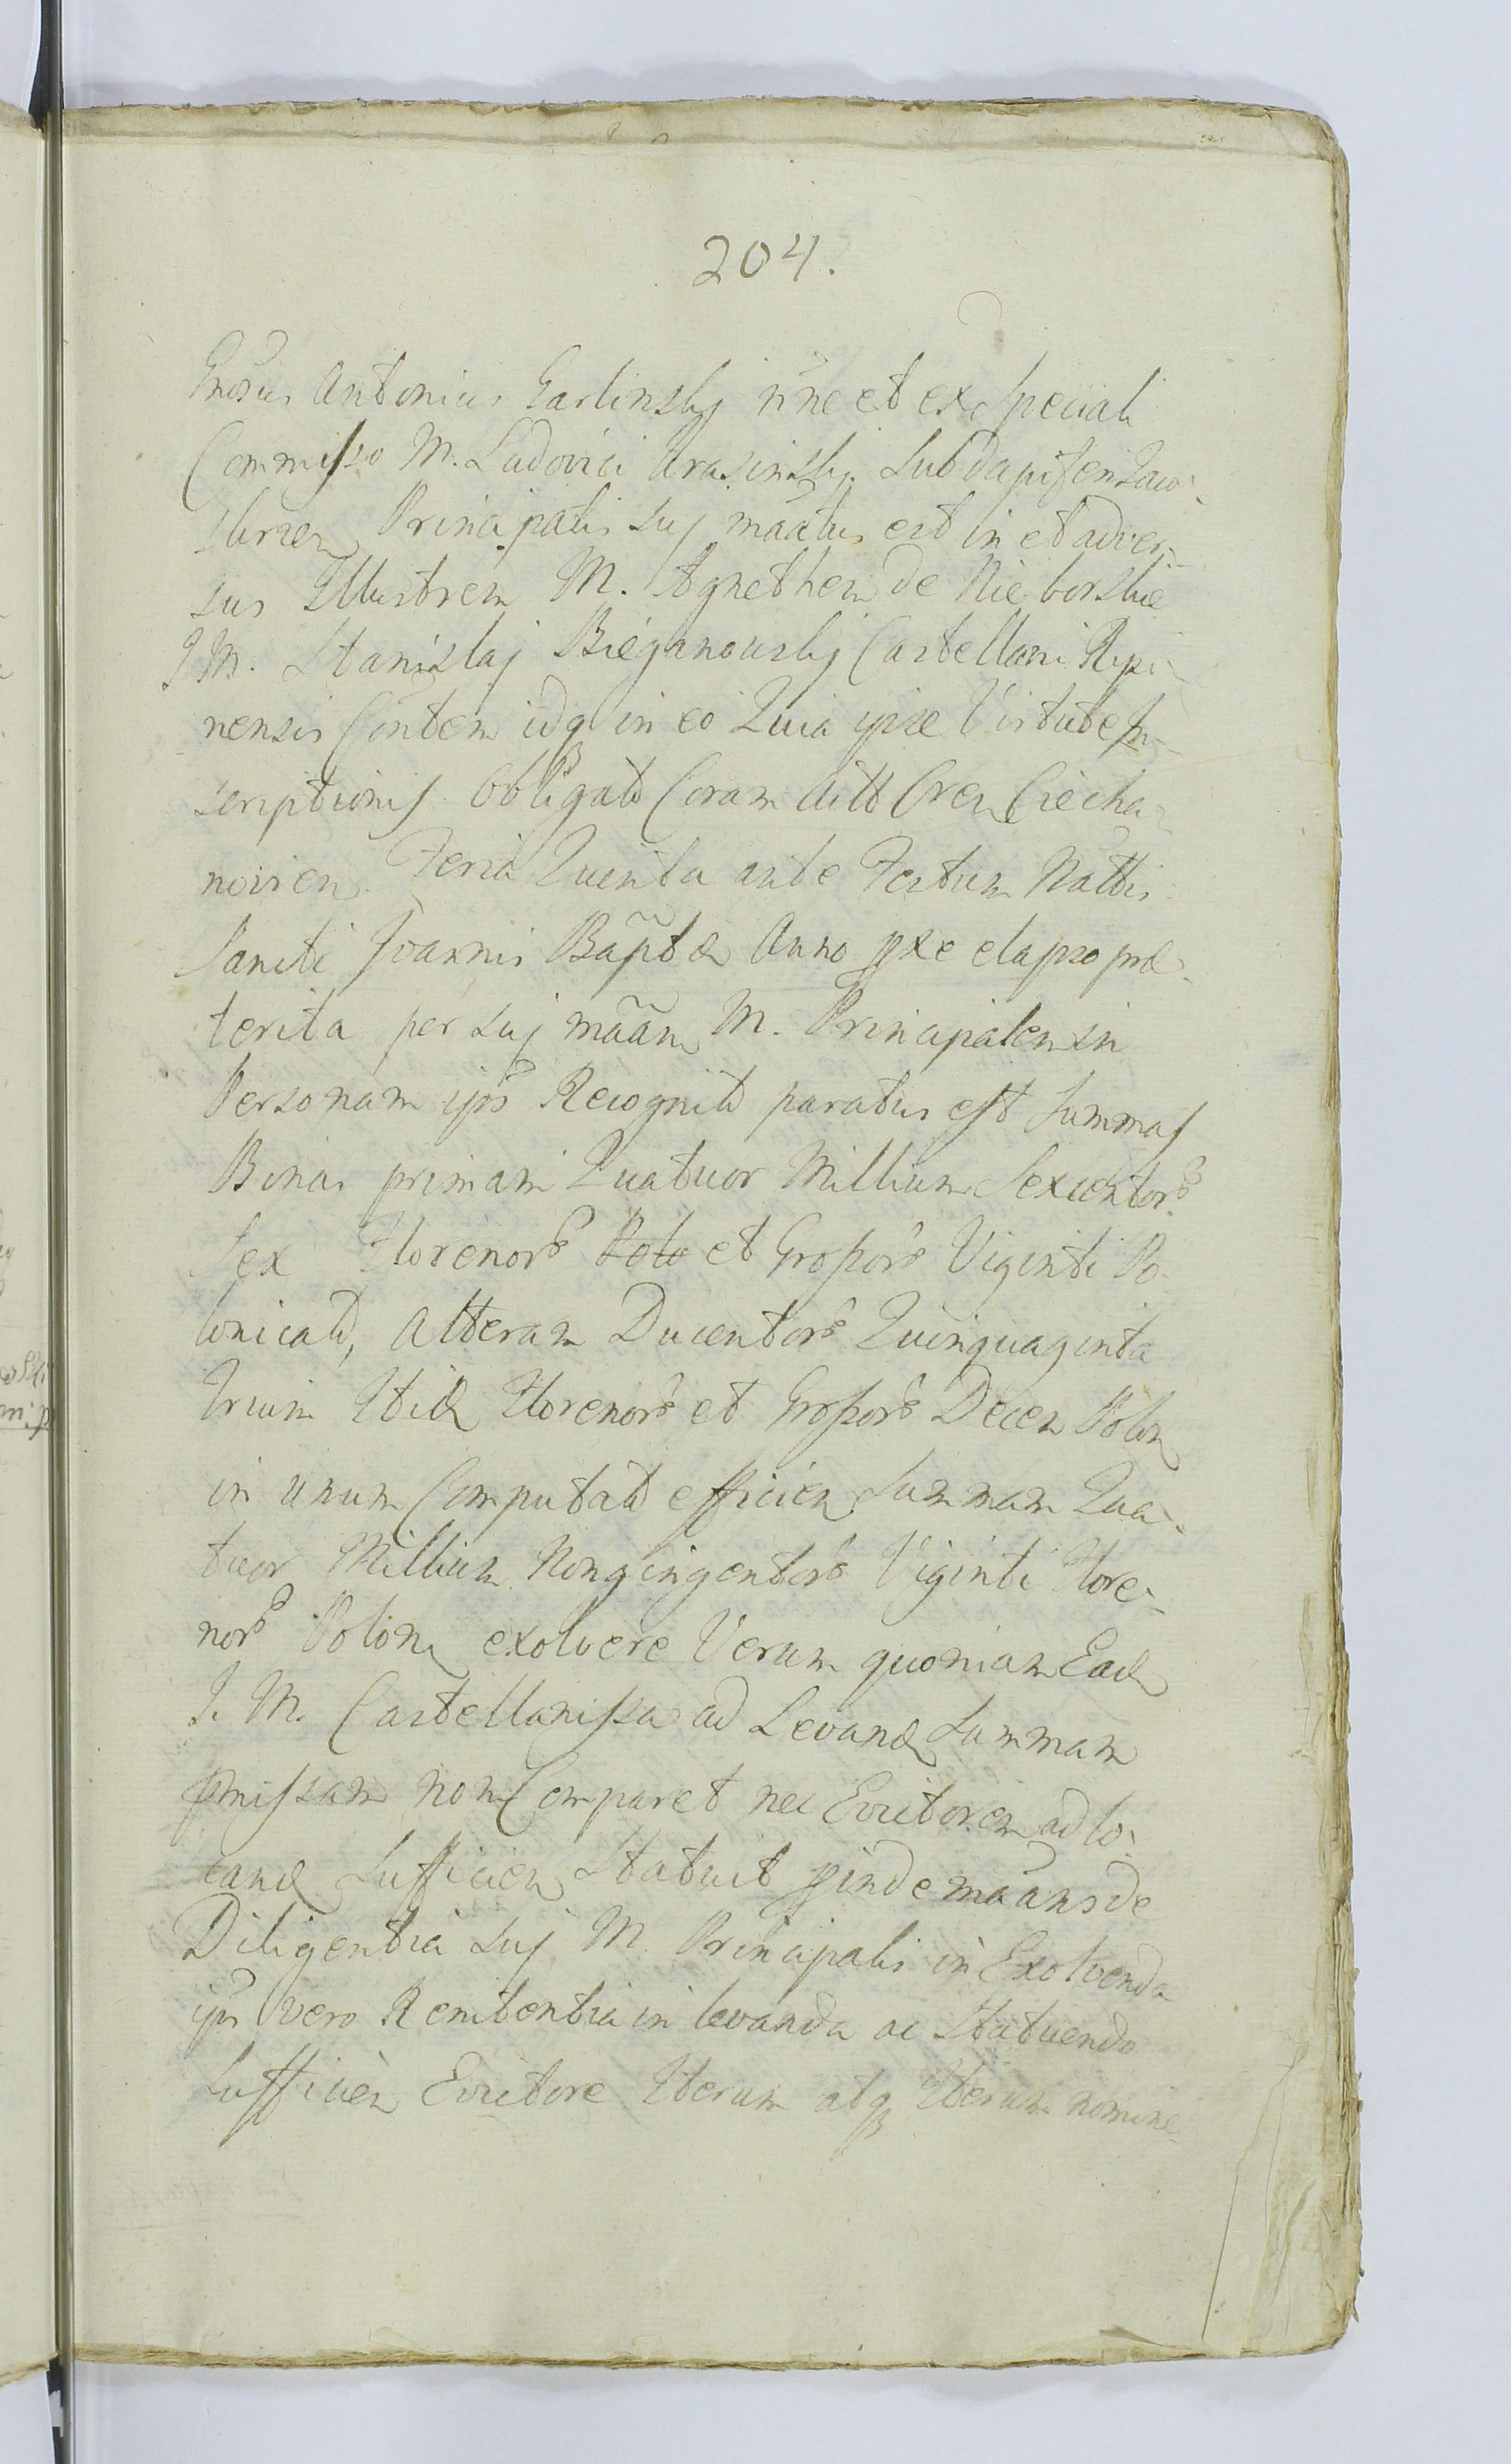 204.
Gnosus Antonius Garlinsky nne et ex Speciali
Commisso M. Ludovici Krasinsky Subdapiferi Zaw-
skrzen Principalis suj maatus est in et adver-
sus Illustrem M. Agnethem de Nieborskie
J M. Stanislaj Bieganowskij Castellani Rypi-
nensis Contem idq in eo Quia ipse Virtute In-
scriptionis Obligato Coram Actt Cren Ciecha-
novien. Feria Quinta ante Festum Nattis
Sancti Joannis Baptæ Anno pxe elapso præ-
terita per suj maam M. Principalem in
Personam ips Recognito paratus est Summas
Binas primam Quatuor Millium Sexcentor
Sex Florenor Polo et Grossor Viginti Po-
lonicali, Alteram Ducentor Quinquaginta
Trium Itid Florenor et Grossor Decem Polon
in unum Computato efficien Summam Qua-
tuor Millium Nongingentor Viginti Flore-
nor Polon exolvere Verum quoniam Ead
J. M. Castellanissa ad Levand Summam
pmissam non Comparet nec Evictorem ad lo-
cand Sufficien Statuit pinde maans de
Diligentia suj M. Principalis in Exolvenda
ips vero Renitentia in levanda ac Statuendo
Sufficien Evictore Iterum atq Iterum nomine